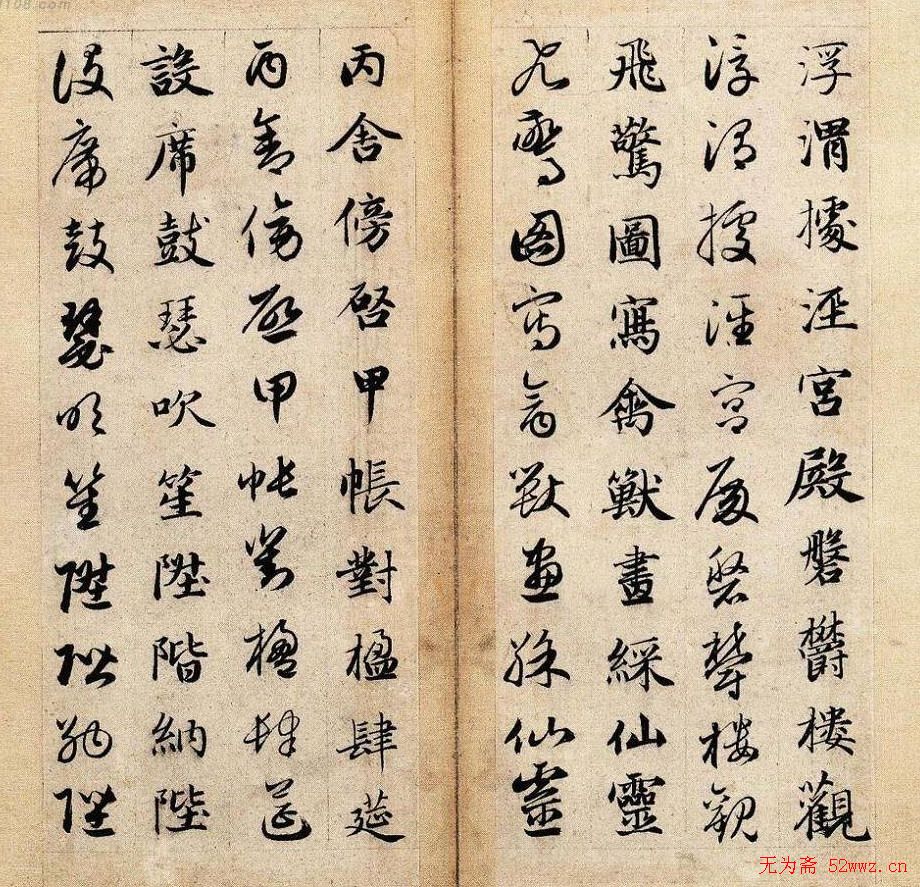 浮渭據涇宮殿磐欝樓觀
浮渭據涇宮殿磐欝樓觀
飛驚圖寫禽獸畫綵仙靈
飛驚圖寫禽獸畫綵仙靈
丙舍傍啓甲帳對楹肆莚
丙舍傍啓甲帳對楹肆莚
設席鼓瑟吹笙陞階納陛
設席鼓瑟吹笙陞階納陛
108.com
无为斋 52wwz.cn